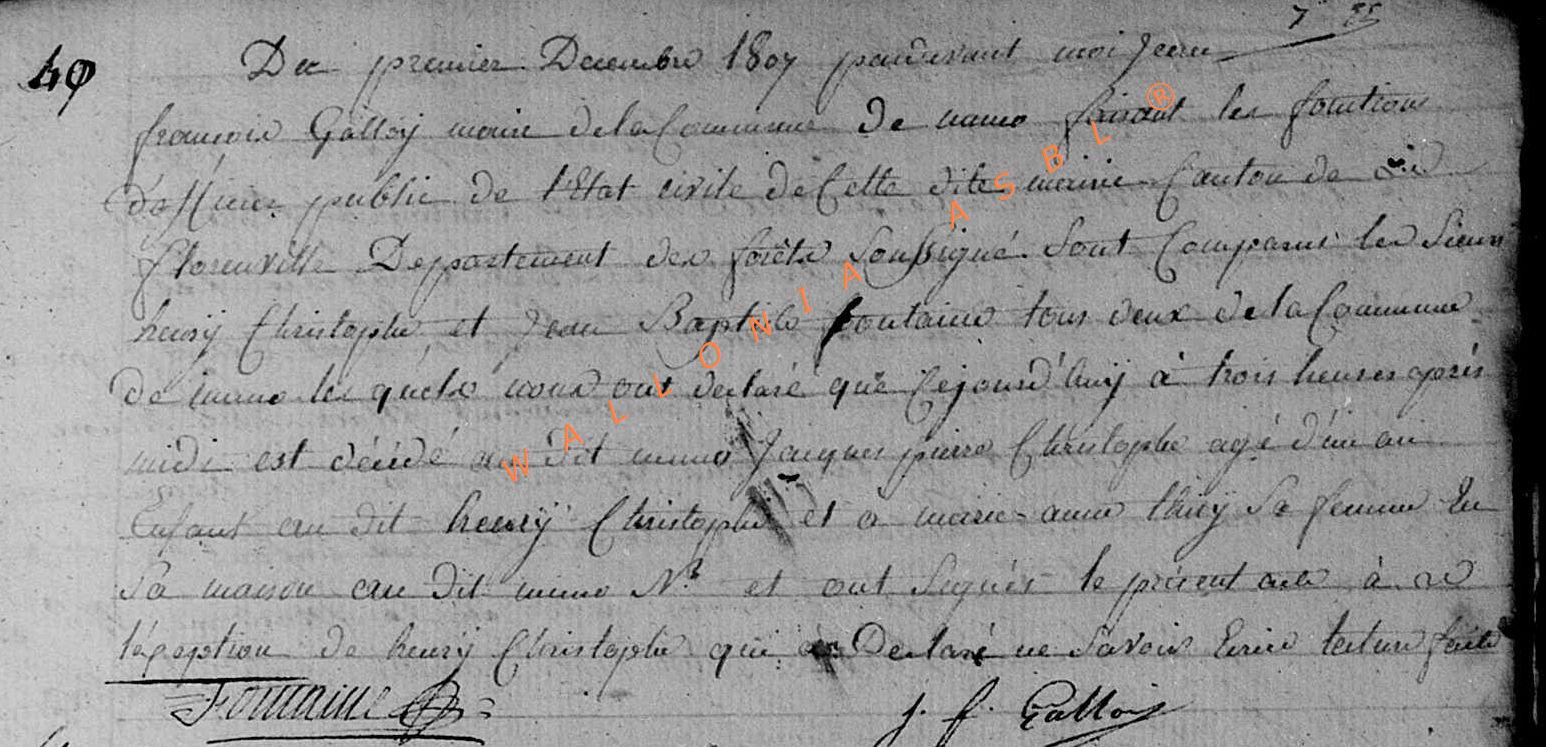 7 25
49
Du premier Decembre 1807 pardevant moi Jean
françois Galloÿ maire dela Commune de muno faisant les fonctions
d'officier public de l'Etat civile de Cette dite mairie Canton de
florenville Deppartement des forêts soussigné sont Comparus les sieurs
henrÿ Christophe et Jean Baptiste fontaine tous deux de la Commune
de muno les quels nous ont declaré que Cejourd'huÿ à trois heures après
midi est décédé au dit muno Jacques pierre Christophe agé d'un an
Enfant au dit henrÿ Christophe et a marie-anne thirÿ Sa femme En
Sa maison au dit muno N° et ont Signés le présent acte à
l'exeption de henrÿ Christophe qui a Declaré ne Savoir Ecrire lecture faite
Fontaine
J. f. Galloiy
WALLONIA ASBL ®